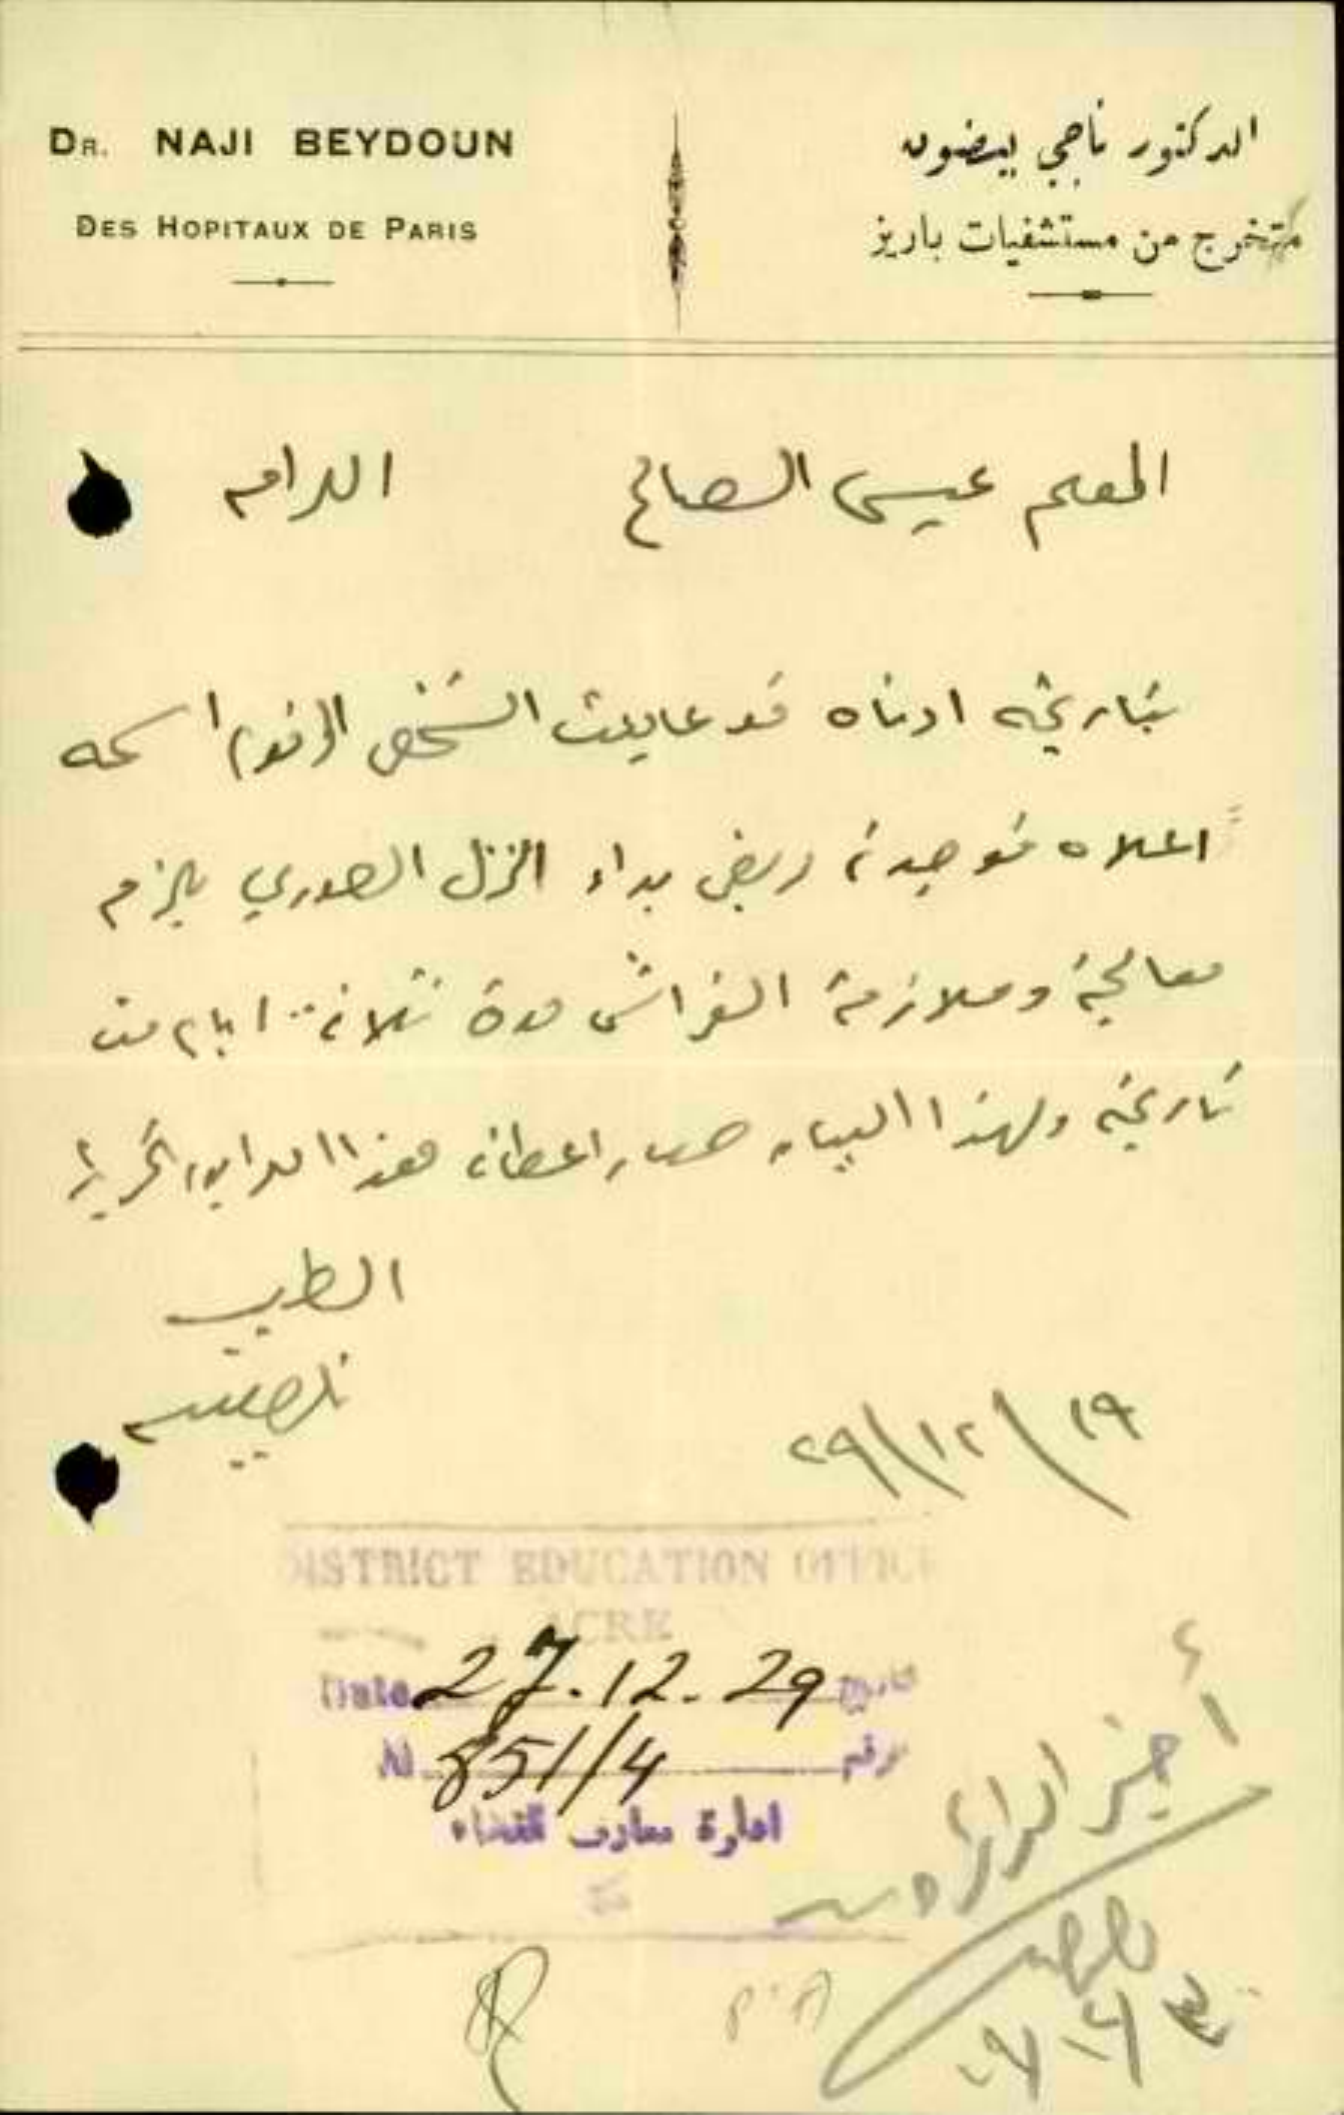 DR. NAJI BEYDOUN
DES HOPITAUX DE PARIS
الدكتور ناجي بيضون
متخرج من مستشفيات باريز
المعلم عيسى الصالح الرامه
بتاريخه ادناه قد عاينت الشخص المرقوم اسمه
اعلاه فوجدته مريض بداء النزل الصدري يلزم
معالجة وملازمة الفراش مدة ثلاثة ايام من
تاريخه ولهذا البيان صار اعطائه هذا
الطبيب
١٩/١٢/٢٩
DISTRICT EDUCATION OFFICE
ACRE
Date 27.12.29 تاريخ
No 851/4 رقم
ادارة معارف القضاء